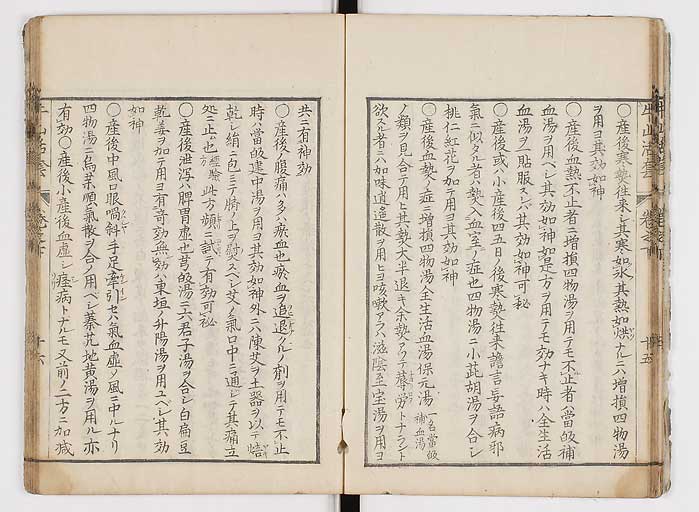 〇産後寒熱往来シ其寒如氷其熱如烘ナルニハ増損四物湯
ヲ用ヨ其効如神
〇産後血熱不止者ニ増損四物湯ヲ用テモ不止者ハ當皈補
血湯ヲ用ベシ其効如神如是方ヲ用テモ効ナキ時ハ全生活
血湯ヲ貼服スベシ其効如神可秘
〇産後或ハ小産後四五日ノ後寒熱往来譫言妄語病邪
氣ニ似タル者ハ熱入血室ノ症也四物湯ニ小茈胡湯ヲ合シ
桃仁紅花ヲ加テ用ヨ其効如神
〇産後血熱ノ症ニ増損四物湯全生活血湯保元湯一名當皈補血湯
ノ類ヲ見合テ用ヒ其熱大半退キ余熱アリテ蓐労トナラント
欲スル者ニハ加味逍遥散ヲ用ヒヨ咳嗽アラハ滋陰至宝湯ヲ用ヨ
共ニ有神効
〇産後ノ腹痛ハ多ハ瘀血也瘀血ヲ追退クルノ剤ヲ用テモ不止
時ハ當皈建中湯ヲ用ヨ其効如神外ニ六陳艾ヲ土器ヲ以テ焙
乾シ絹ニ包ミテ臍ノ上ヲ熨スベシ艾ノ氣口中ニ通シテ其痛立
忽ニ止也経験方此方頻ニ試テ有効可秘
〇産後泄瀉ハ脾胃虚也芎皈湯ニ六君子湯ヲ合シ白扁豆
乾姜ヲ加テ用ヨ有奇効無効ハ東垣ノ升陽湯ヲ用ユベシ其効
如神
〇産後中風口眼喎斜手足牽引セハ氣血虚ノ風ニ中ルナリ
四物湯ニ烏薬順氣散ヲ合ノ用ベシ蓁艽地黄湯ヲ用ル亦
有効〇産後小産後血虚シ痓病トナルモ又前ノ二方ニ加減